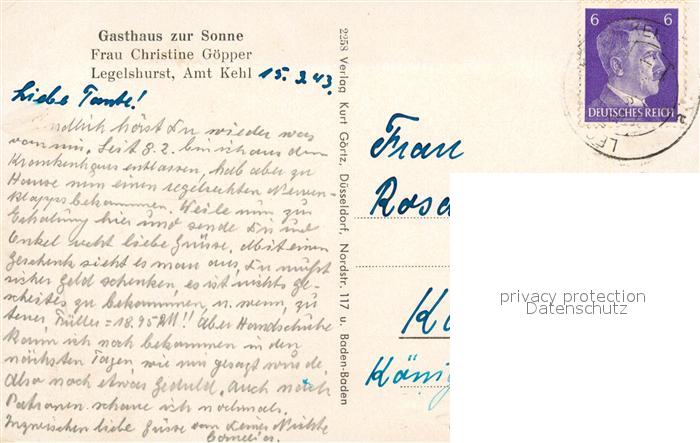 Gasthaus zur Sonne
Frau Christine Göpper
Legelshurst, Amt Kehl 15.2.43.
Liebe Tante!
endlich hörst Du wieder was
von mir. Seit 8.2. bin ich aus dem
Krankenhaus entlassen, hab aber zu
Hause nun einen regelrechten Nerven-
klapps bekommen. Weile nun zur
Erholung hier und sende Dir und
Onkel recht liebe Grüsse. Mit einem
Geschenk sieht es mau aus, Du mußt
sicher Geld schenken, es ist nichts ge-
scheites zu bekommen, u. wenn, zu
teuer, Füller = 18.95 RM!! Aber Handschuhe
kann ich noch bekommen in den
nächsten Tagen wie mir gesagt wurde.
Also noch etwas Geduld. Auch nach
Patronen schaue ich nochmals.
Inzwischen liebe Grüsse von Deiner Nichte
2258 Verlag Kurt Görtz, Düsseldorf, Nordstr. 117 u. Baden-Baden
6 6
DEUTSCHES REICH
Frau
Rosa
K
König
privacy protection
Datenschutz